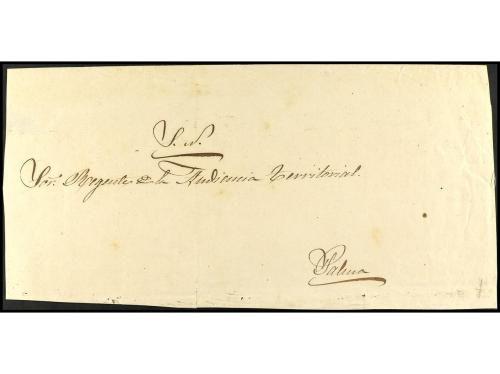 S. N.
Sor. Regente de la Audiencia Territorial.
Palma